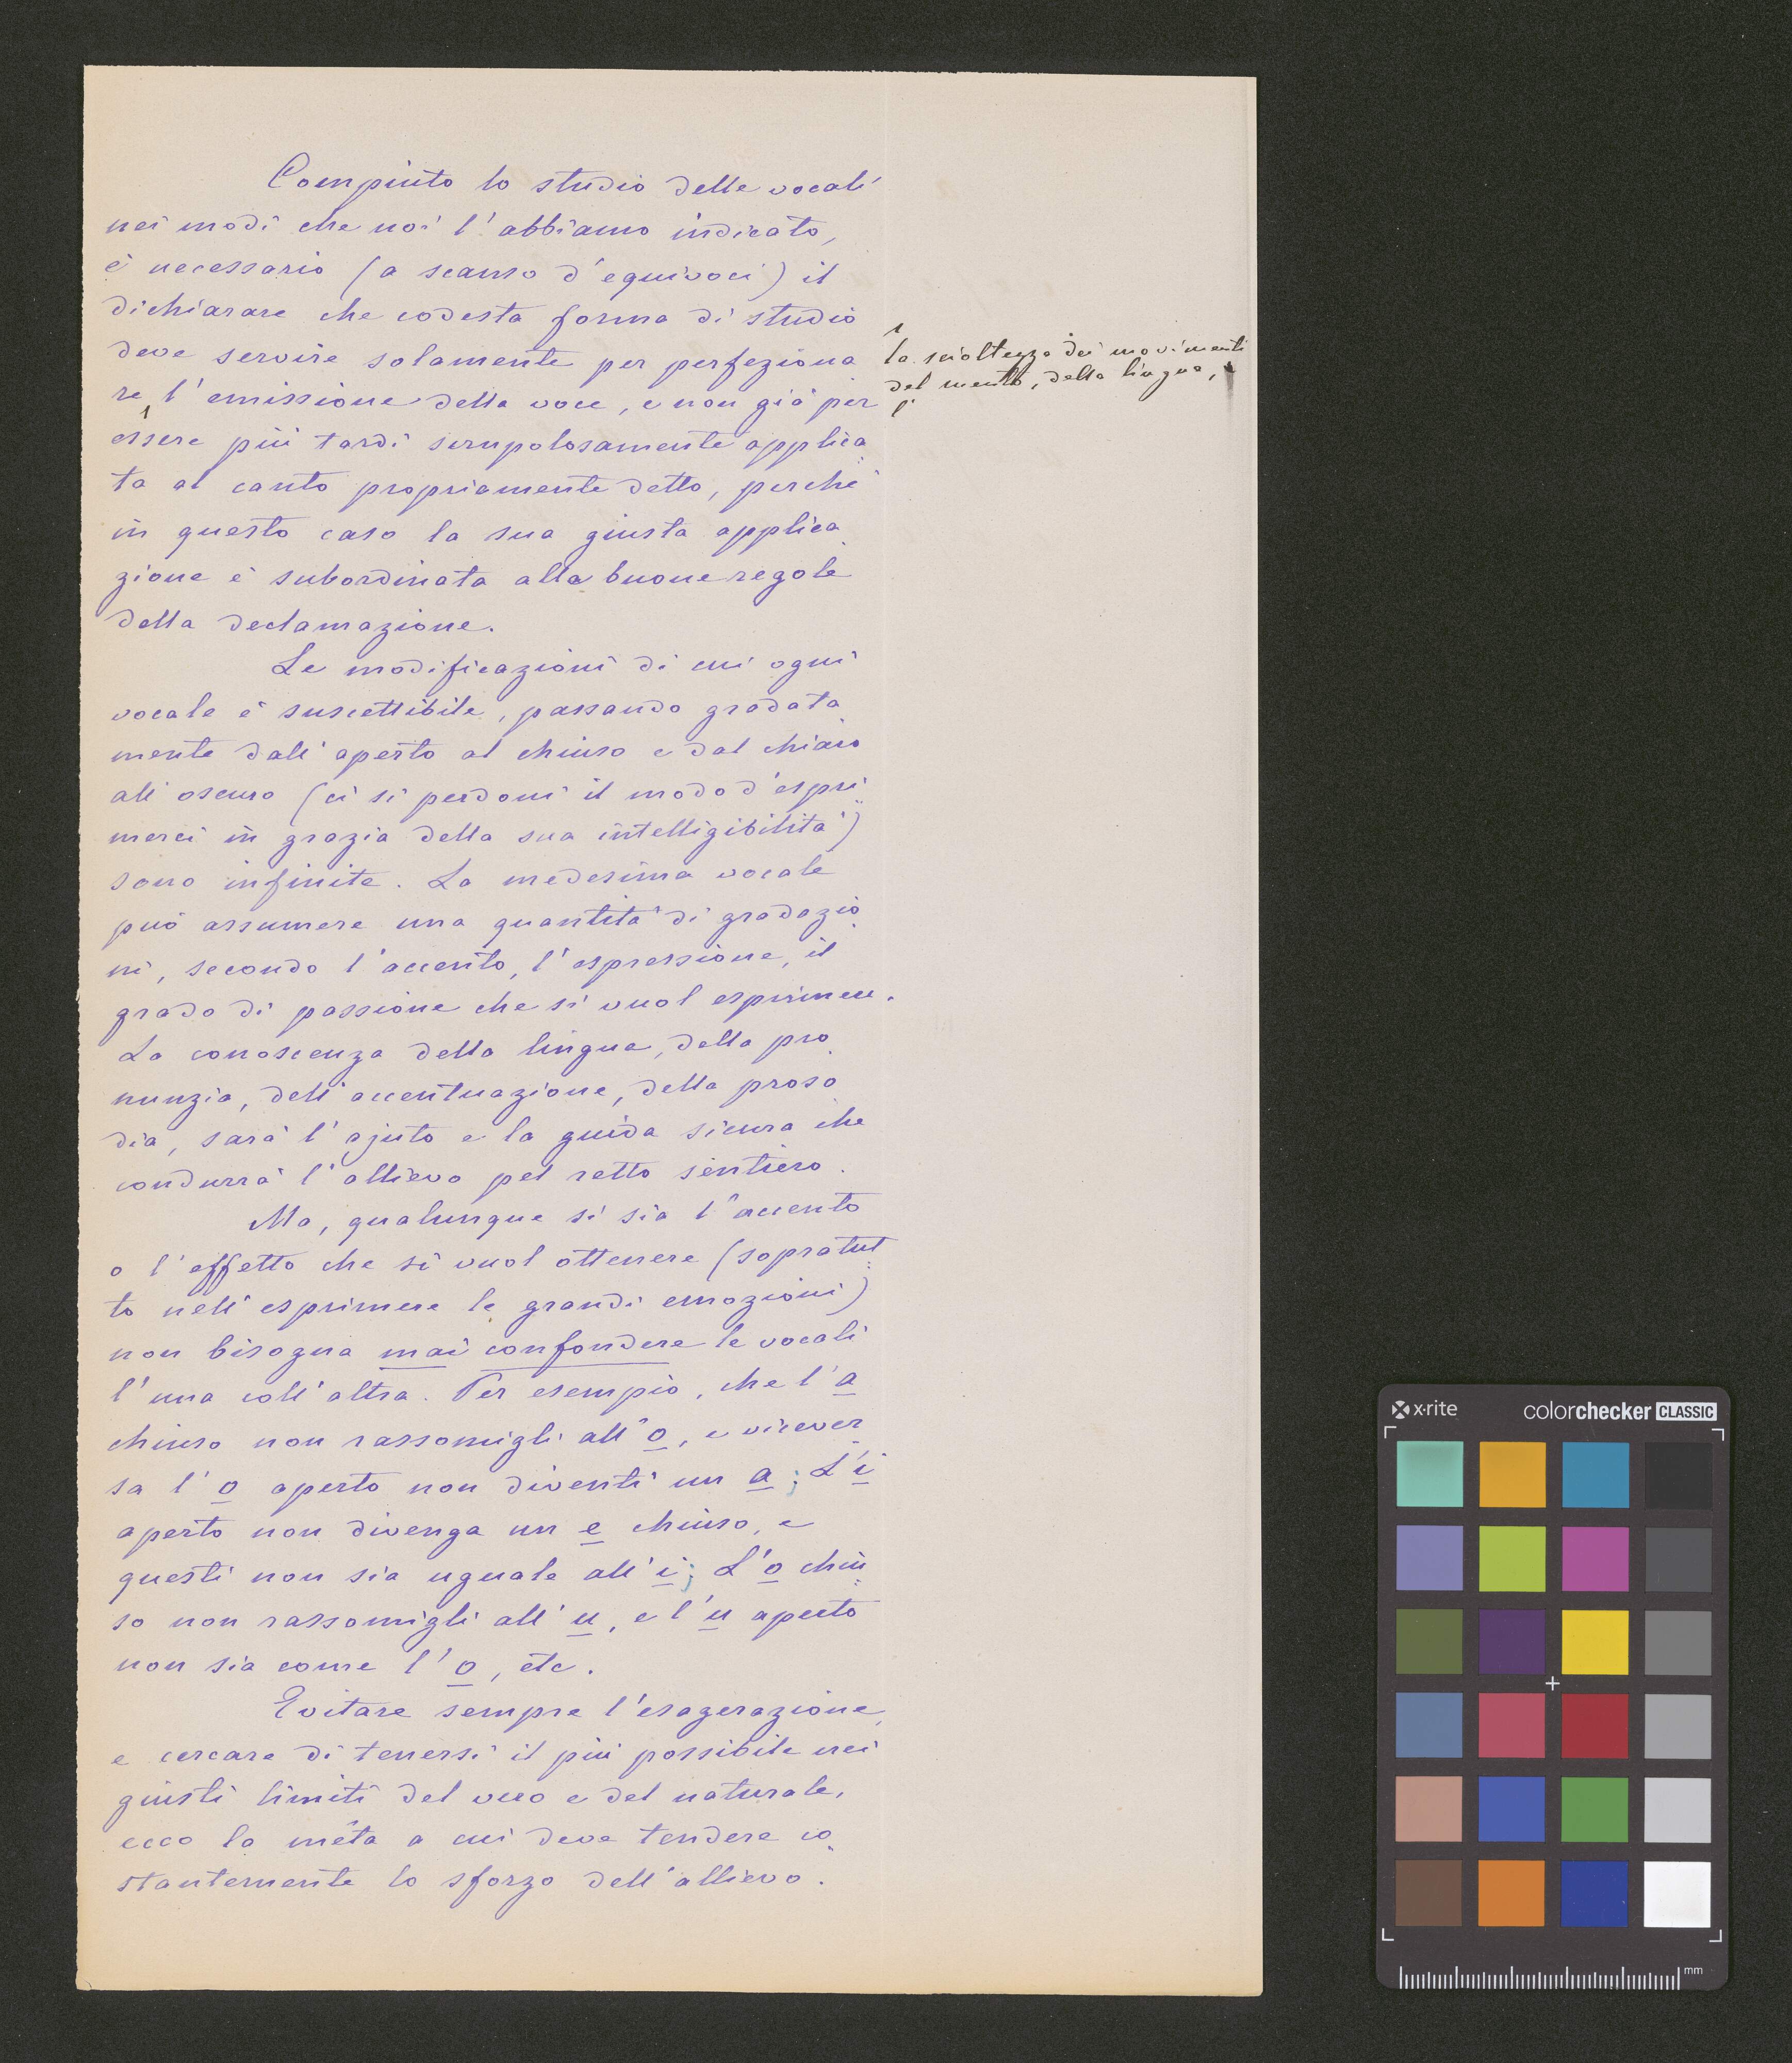 Compiuto lo studio delle vocali
nei modi che noi l'abbiamo indicato,
è necessario (a scanso d'equivoci) il
dichiarare che codesta forma di studio
deve servire solamente per perfeziona
la scioltezza dei movimenti
del mento, della lingua,
re l'emissione della voce, e non già per
essere più tardi scrupolosamente applica
ta al canto propriamente detto, perchè
in questo caso la sua giusta applica
zione è subordinata alle buone regole
della declamazione.
Le modificazioni di cui ogni
vocale è suscettibile, passando gradata
mente dall'aperto al chiuso e dal chiaro
all'oscuro (ci si perdoni il modo d'espri
merci in grazia della sua intelligibilità)
sono infinite. La medesima vocale
può assumere una quantità di gradazio
ni, secondo l'accento, l'espressione, il
grado di passione che si vuol esprimere.
La conoscenza della lingua, della pro
nunzia, dell'accentuazione, della proso
dia, sarà l'ajuto e la guida sicura che
condurrà l'allievo pel retto sentiero.
Ma, qualunque si sia l'accento
o l'effetto che si vuol ottenere (sopratut
to nell'esprimere le grandi emozioni)
non bisogna mai confondere le vocali
l'una coll'altra. Per esempio, che l'a
chiuso non rassomigli all'o, e vicever
sa l'o aperto non diventi un a; L'i
aperto non divenga un e chiuso, e
questi non sia uguale all'i; L'o chiu
so non rassomigli all'u, e l'u aperto
non sia come l'o, etc.
Evitare sempre l'esagerazione,
e cercare di tenersi il più possibile nei
giusti limiti del vero e del naturale,
ecco la mêta a cui deve tendere co
stantemente lo sforzo dell'allievo.
x-rite
colorchecker CLASSIC
mm